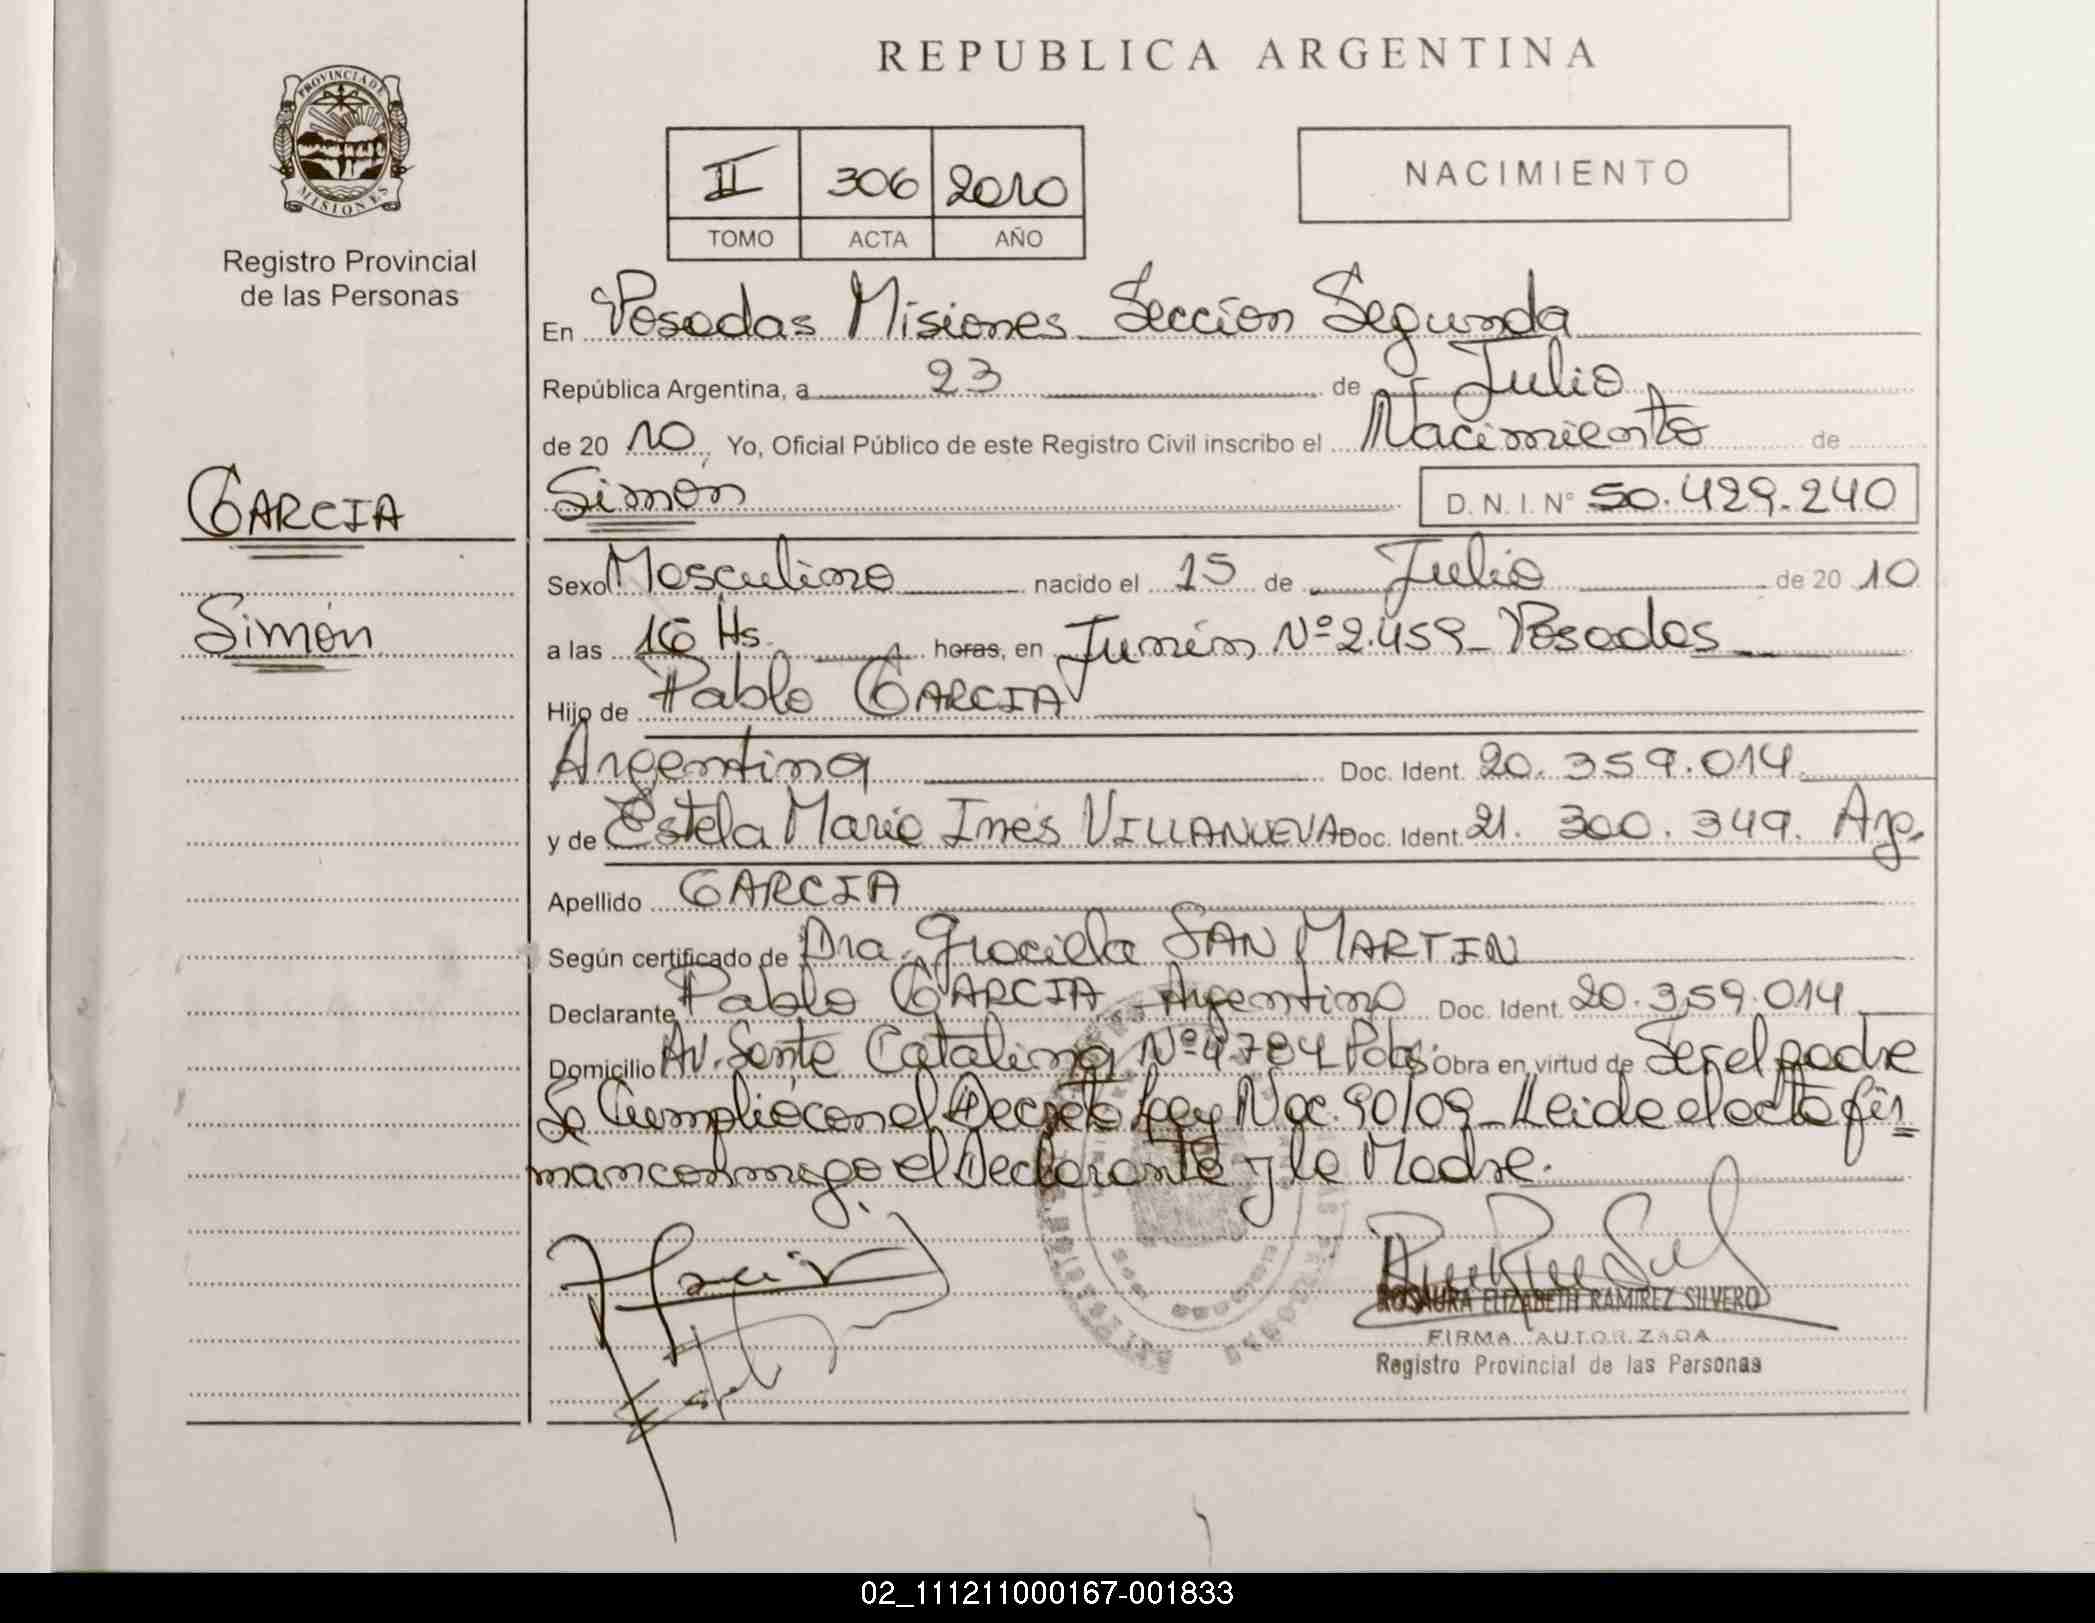 REPUBLICA ARGENTINA
PROVINCIA DE
MISIONES
Registro Provincial
de las Personas
II 306 2010
TOMO ACTA AÑO
NACIMIENTO
En Posadas Misiones Sección Segunda
República Argentina, a 23 de Julio
de 20 10, Yo, Oficial Público de este Registro Civil inscribo el Nacimiento de
GARCIA
Simón
Simón D. N. I. N° 50.429.240
Sexo Masculino nacido el 15 de Julio de 20 10
a las 16 Hs. horas, en Junín Nº 2.459 - Posadas
Hijo de Pablo GARCIA
Argentina Doc. Ident. 20.359.014
y de Estela Maria Ines VILLANUEVA Doc. Ident. 21.300.349. Arg.
Apellido GARCIA
Según certificado de Dra. Graciela SAN MARTIN
Declarante Pablo GARCIA Argentino Doc. Ident. 20.359.014
Domicilio Av. Santa Catalina Nº 4784 Pdas. Obra en virtud de Ser el padre
Se Cumplió con el Decreto Ley Nac. 90/09 - Leída el acta fir=
man conmigo el Declarante y la Madre.
ROSAURA ELIZABETH RAMIREZ SILVERO
FIRMA AUTORIZADA
Registro Provincial de las Personas
02_111211000167-001833